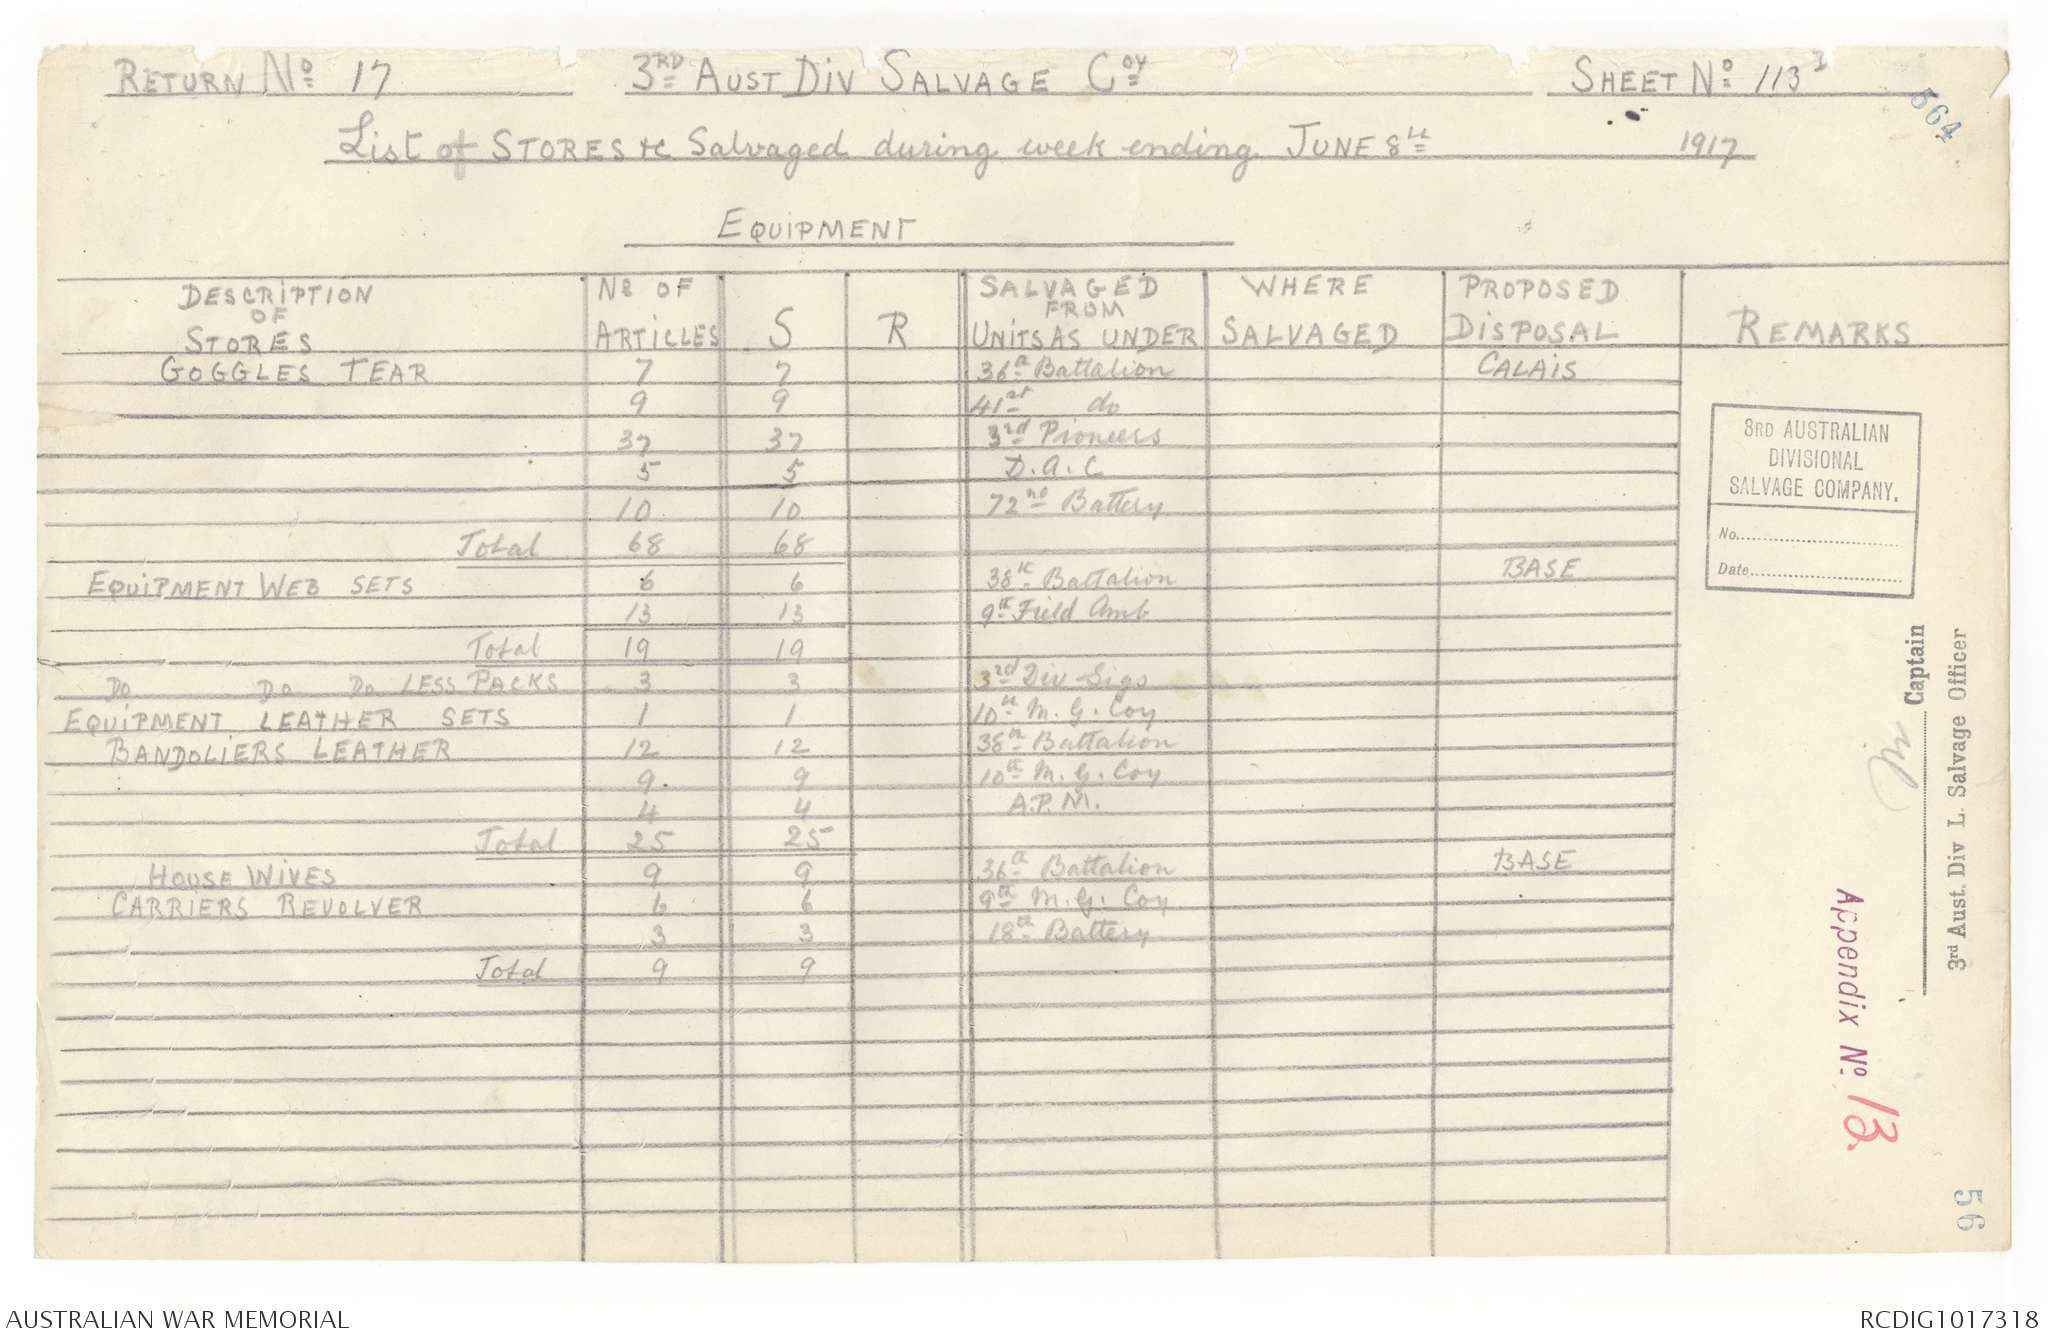 RETURN No 17 3RD AUST DIV SALVAGE Coy SHEET No 113
564
List of STORES &c Salvaged during week ending JUNE 8th 1917
EQUIPMENT
DESCRIPTION OF STORES No OF ARTICLES S R SALVAGED FROM UNITS AS UNDER WHERE SALVAGED PROPOSED DISPOSAL REMARKS
GOGGLES TEAR 7 7 36th Battalion CALAIS
9 9 41st do
37 37 3rd Pioneers
5 5 D.A.C
10 10 72nd Battery
Total 68 68
EQUIPMENT WEB SETS 6 6 38th Battalion BASE
13 13 9th Field Amb
Total 19 19
DO DO DO LESS PACKS 3 3 3rd Div Sigs
EQUIPMENT LEATHER SETS 1 1 10th M.G. Coy
BANDOLIERS LEATHER 12 12 38th Battalion
9 9 10th M.G. Coy
4 4 A.P.M.
Total 25 25
HOUSE WIVES 9 9 36th Battalion BASE
CARRIERS REVOLVER 6 6 9th M.G. Coy
3 3 18th Battery
Total 9 9
3RD AUSTRALIAN
DIVISIONAL
SALVAGE COMPANY.
No.
Date
Captain
3rd Aust. Div L. Salvage Officer
Appendix No. 13
56
AUSTRALIAN WAR MEMORIAL RCDIG1017318